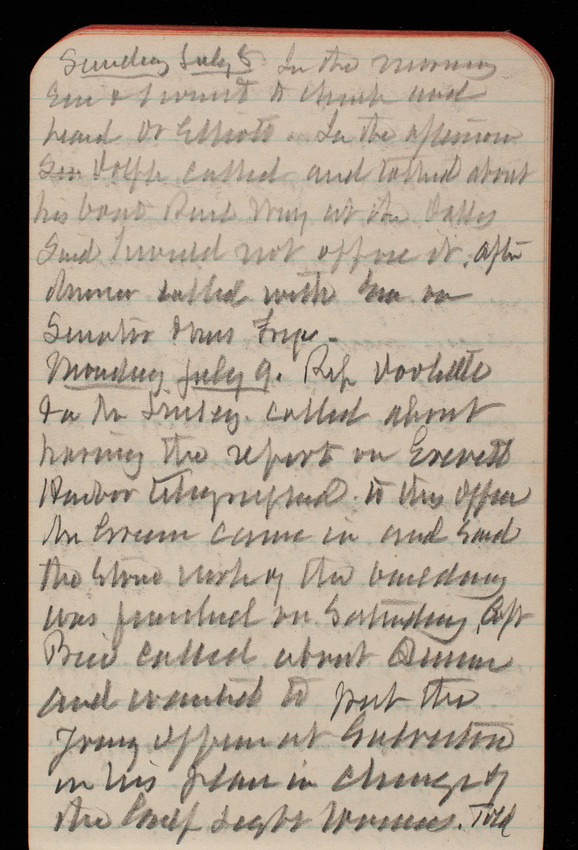 Sunday July 8. In the morning
Em & I went to church and
heard Dr Elliott. In the afternoon
Sen Dolph called and talked about
his boat Rail Way at the Dalles
Said I would not oppose it. After
dinner called with Em on
Senator
Monday July 9. Rep Doolittle
called about
having the report on Everett
Harbor telegraphed to this office
Mr Green came in and said
the Stone work of the building
was finished on Saturday, Capt
called about
and wanted to put the
Young officer at Galveston
in his place in charge of
the Light Houses. Told